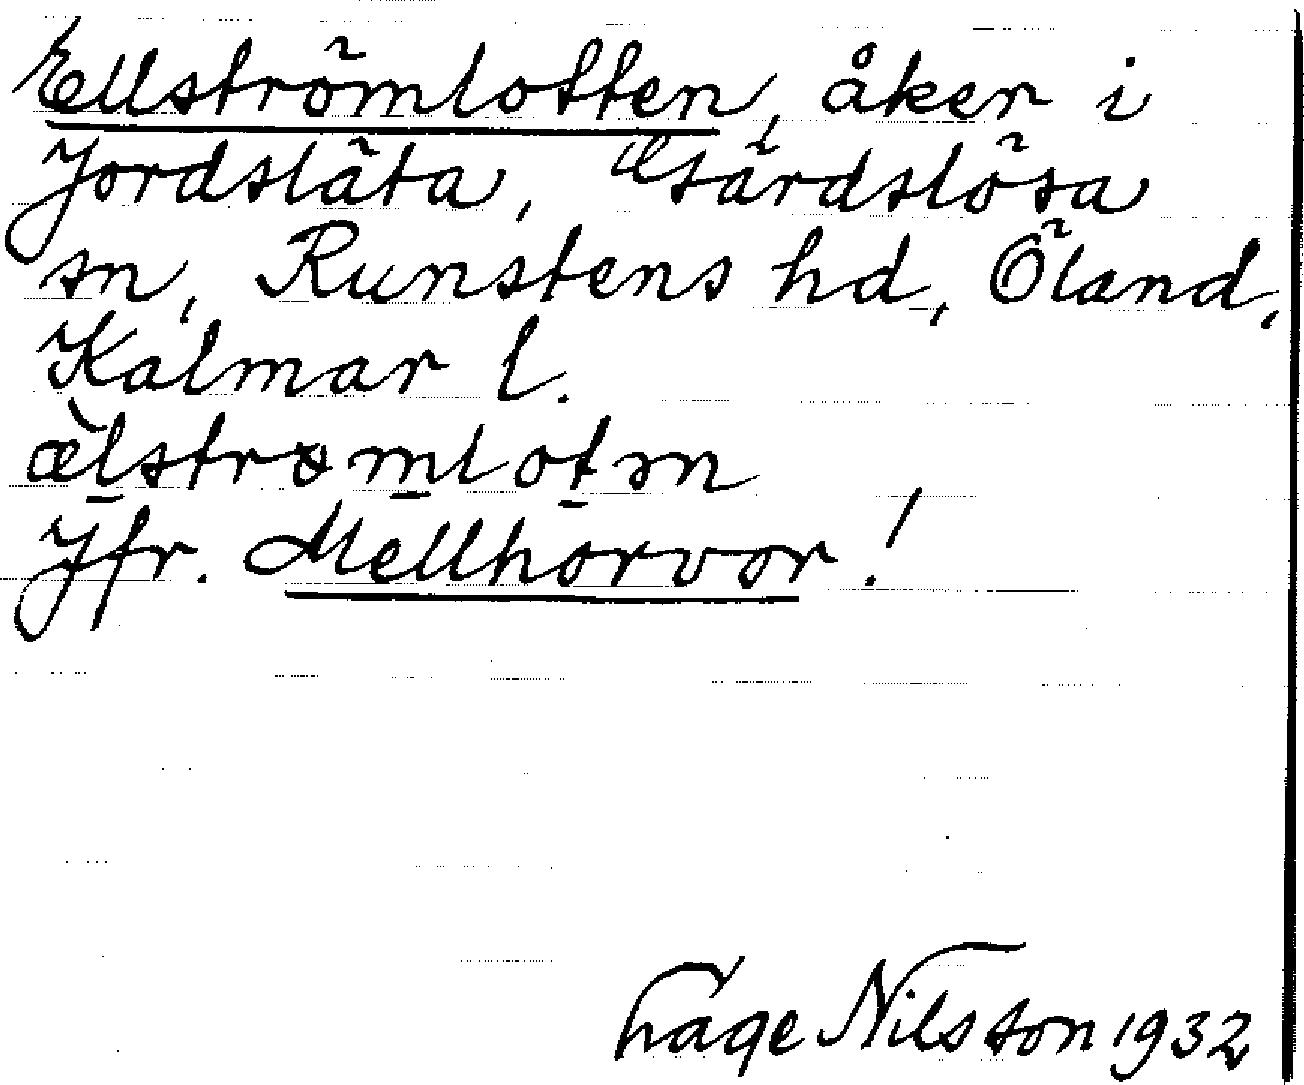 Ellströmlotten, åker i
Jordsläta, Gärdslösa
sn, Runstens hd, Öland,
Kalmar l.
æ̀l̠strɵm̠lot̠ən
Jfr. Mellhorvor!
Tage Nilsson 1932